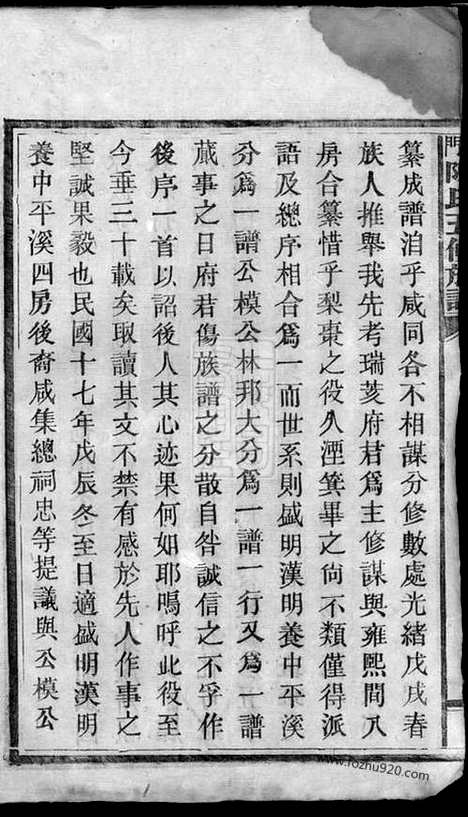 陳氏五修族譜
纂成譜洎乎咸同各不相謀分修數處光緒戊戌春
族人推舉我先考瑞芰府君為主修謀與雍熙間八
房合纂惜乎梨棗之役久湮箕畢之尙不類僅得派
語及總序相合為一而世系則盛明漢明養中平溪
分爲一譜公模公林邦大分爲一譜一行又爲一譜
蕆事之日府君傷族譜之分散自咎誠信之不孚作
後序一首以詔後人其心迹果何如耶嗚呼此役至
今垂三十載矣取讀其文不禁有感於先人作事之
堅誠果毅也民國十七年戊辰冬至日適盛明漢明
養中平溪四房後裔咸集總祠忠等提議與公模公
www.fozhu920.com